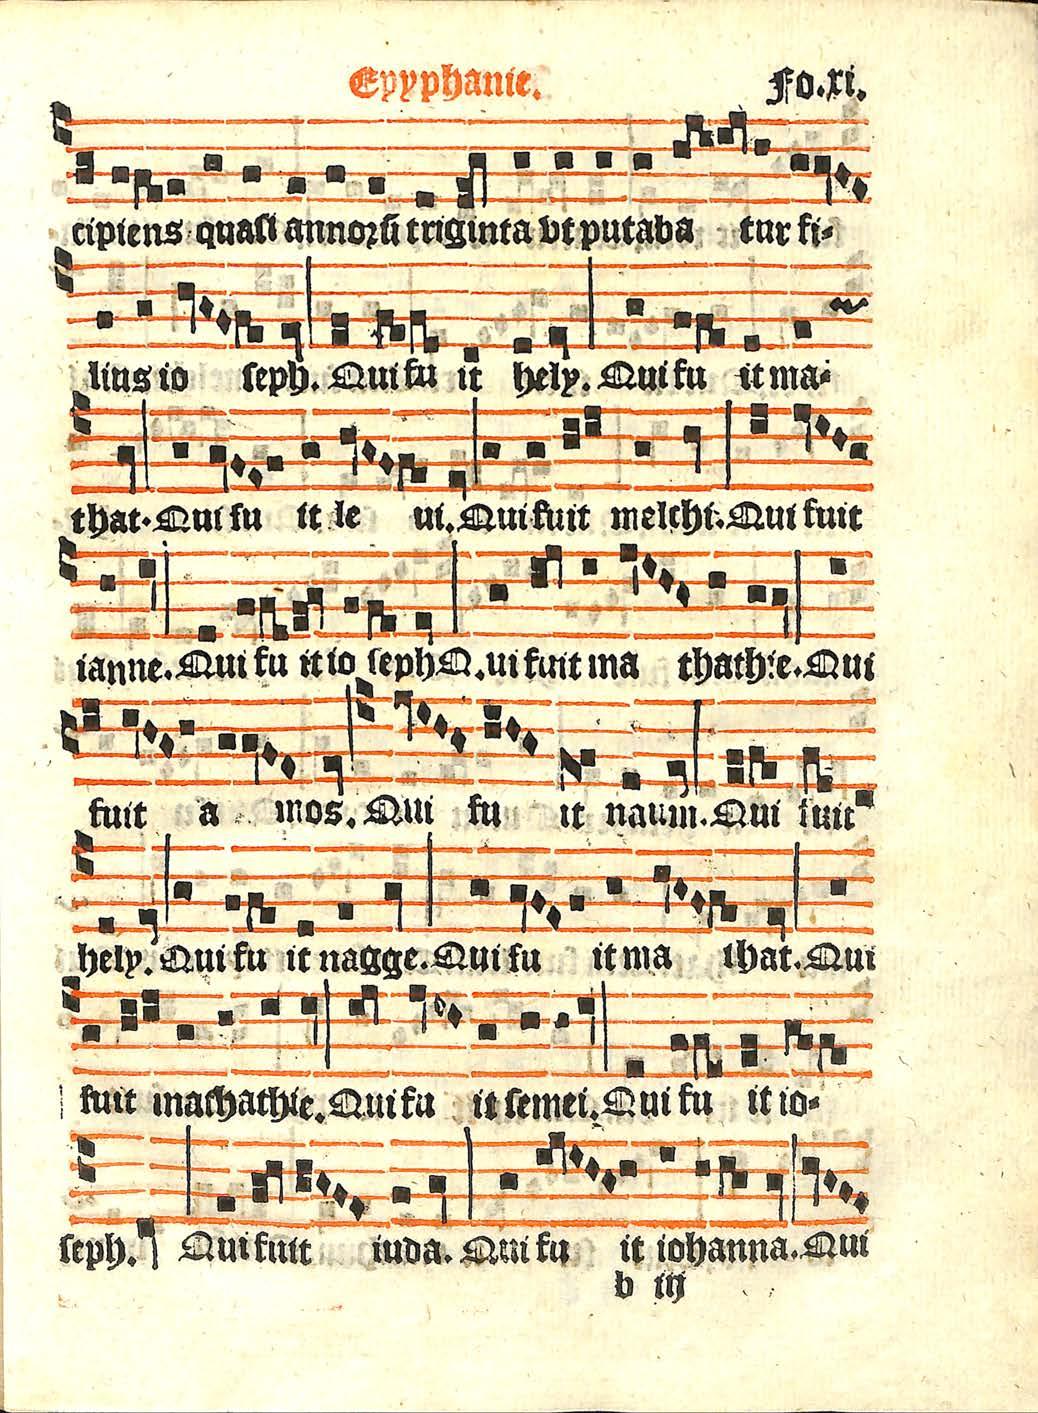 Epyphanie. Fo.xi.
cipiens quasi annorũ triginta vt putaba tur fi-
lius io seph. Qui fu it hely. Qui fu it ma-
that. Qui fu it le ui. Qui fuit melchi. Qui fuit
ianne. Qui fu it io seph Q.ui fuit ma thathie. Qui
fuit a mos. Qui fu it naum. Qui fuit
hely. Qui fu it nagge. Qui fu it ma that. Qui
fuit mathathie. Qui fu it semei. Qui fu it io-
seph. Qui fuit iuda. Qui fu it iohanna. Qui
b iij